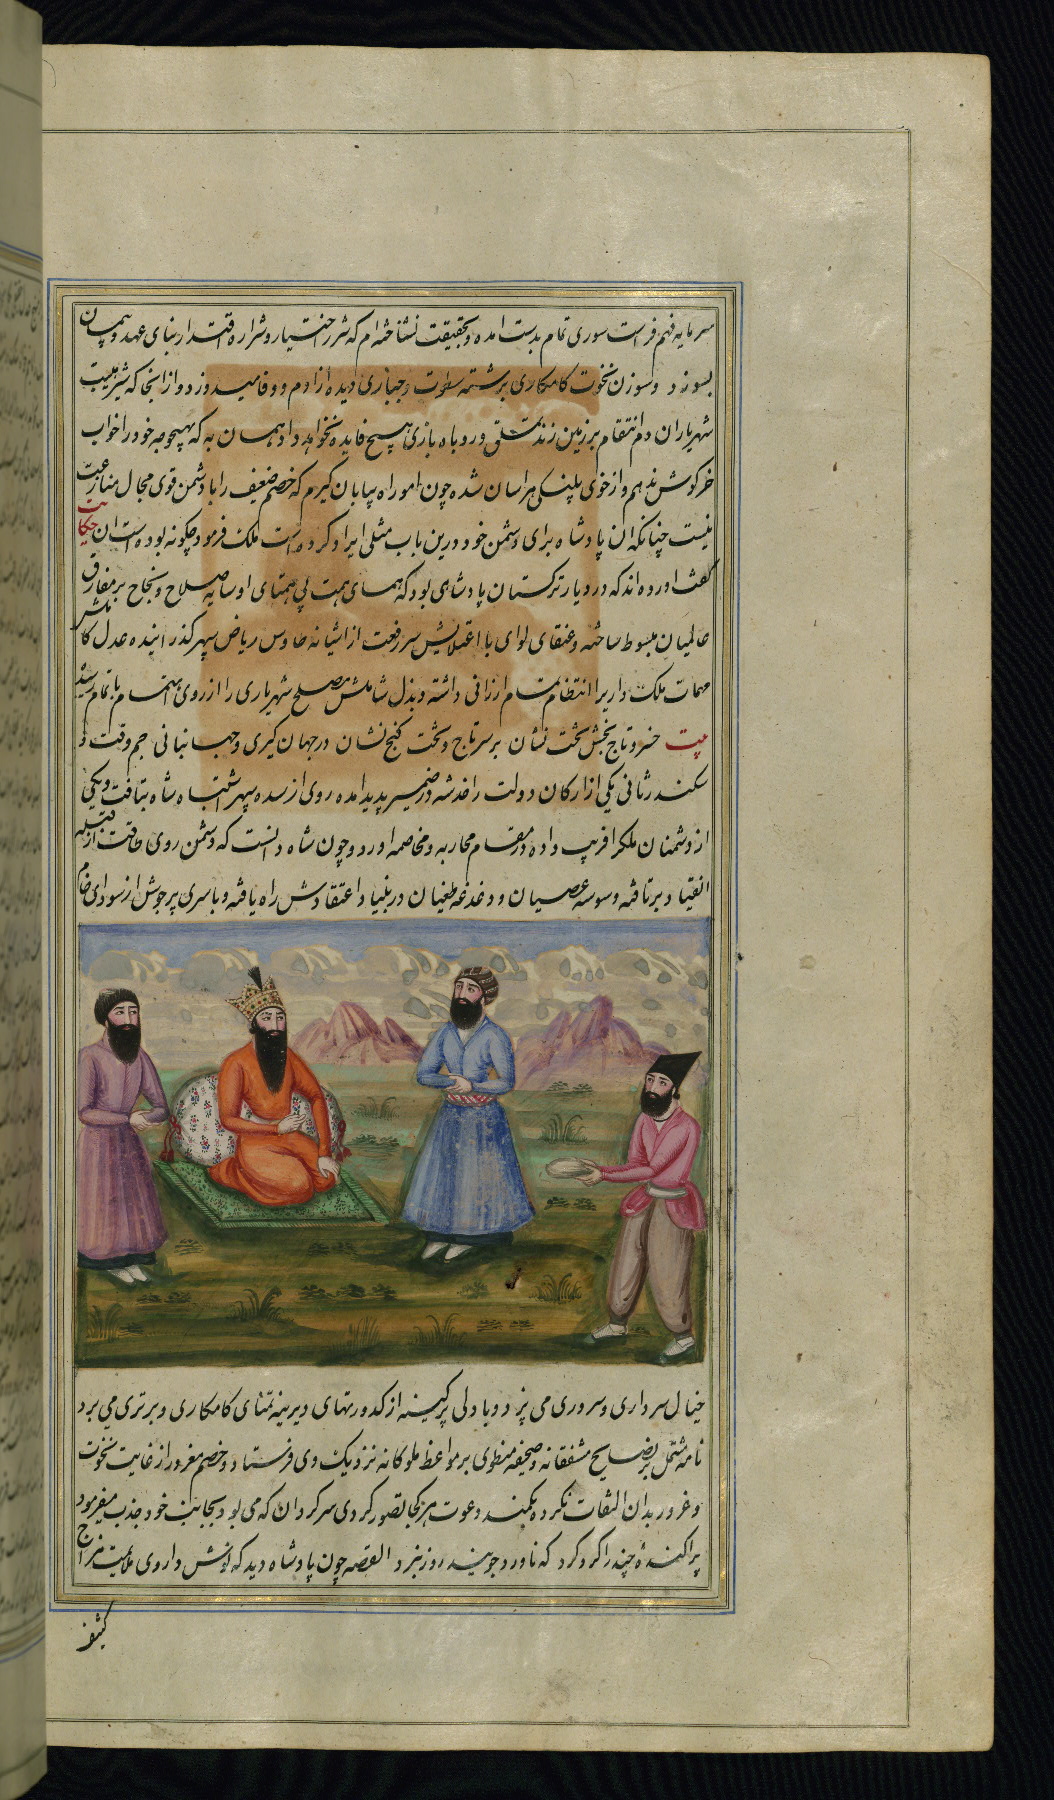 سرمایه فهم فراست سوری تمام بدست امده و بحقیقت نشناخته‌ام که شرر اختیار و شراره اقتدار بنای عهد و پیمان
بسوزد و سوزن نخوت کامکاری برشته سطوت و جباری دیده از ادم و وفا میدوزد و از انجا که شربت
شهریاران دم انتقام بر زمین زند تملقی و روباه بازی هیچ فایده نخواهد داد همان به که بهیچوجه خود را خواب
خرگوش ندهم و از خوی پلنگی هراسان شده چون اهو راه بیابان گیرم که خصم ضعیف را با دشمن قوی مجال منازعت
نیست چنانکه ان پادشاه برای دشمن خود درین باب مثلی ایراد کرده است ملک فرمود چکونه بوده است ان حکایت
گفت اورده‌اند که در دیار ترکستان پادشاهی بود که همای همت بی همتای او سایه صلاح و نجاح بر مفارق
عالمیان مبسوط ساخته و عنقای لوای با اعتلایش سر رفعت از اشیانه طاوس ریاض سپهر گذرانیده عدل کاملش
مهمات ملک داری را انتظام تمام ارزانی داشته و بذل شاملش مصالح شهریاری را از روی اهتمام باتمام رسانید
بیت خسرو تاج بخش تخت نشان بر سر تاج و تخت کنج نشان در جهان کیری و جهانبانی جم وقت و
سکندر ثانی یکی از ارکان دولت را خدشه در ضمیر پدید امده روی از سده سپهر اشتباه شاه بتافت و یکی
از دشمنان ملک را فریب داده در مقام محاربه و مخاصمه اورد و چون شاه دانست که دشمن روی طاقت از قبله
انقیاد برتافته و وسوسه عصیان و دغدغه طغیان در بنیاد اعتقادش راه یافته و با سری پرجوش از سودای خام
خیال سرداری و سروری می پزد و با دلی پرکینه از کدورتهای دیرینه تمنای کامکاری و برتری می برد
نامه مشتمل بر نصایح مشفقانه و صحیفه منطوی بر مواعظ ملوکانه نزدیک وی فرستاد و خصم مغرور از غایت نخوت
و غرور بدان التفات نکرده بکمند دعوت هر کجا تصور کردی سرکردان که می بود بجانب خود جذب میفرمود
پراکندهٔ چند را کرد کرد که ناورد جویند روز نبرد القصه چون پادشاه دید که نوش داروی ملایمت مزاج
کثیف